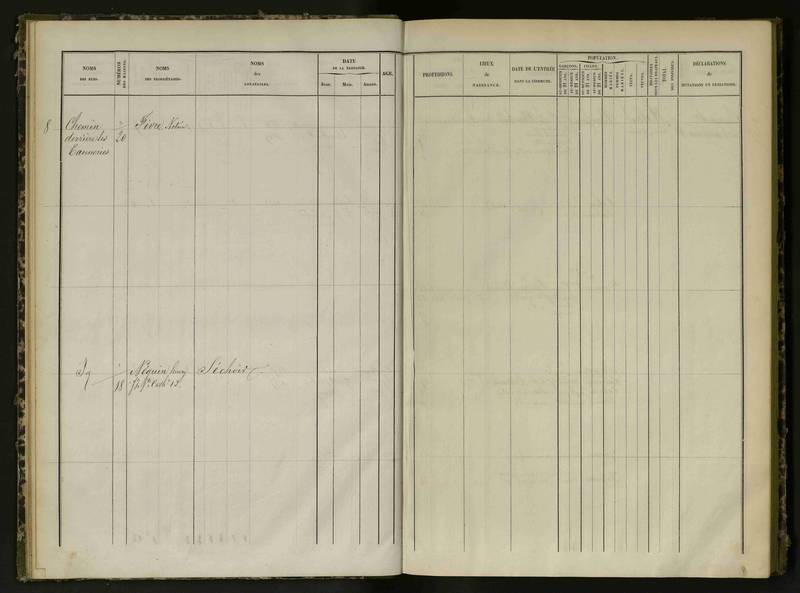 NOMS
DES RUES.
NUMÉROS
DES MAISONS.
NOMS
DES PROPRIÉTAIRES.
NOMS
des
LOCATAIRES.
DATE
DE LA NAISSANCE.
Jour.
Mois.
Année.
AGE.
PROFESSIONS.
LIEUX
de
NAISSANCE.
DATE DE L'ENTRÉE
DANS LA COMMUNE.
POPULATION.
GARÇONS.
FILLES.
HOMMES
MARIÉS.
FEMMES
MARIÉES.
VEUFS.
VEUVES.
TOTAL
DÉCLARATIONS
de
MUTATIONS OU RADIATIONS.
8 Chemin
derrière les
Tanneries
20
Fèvre Notaire
Dq
18
Néquin henry
Séchoir